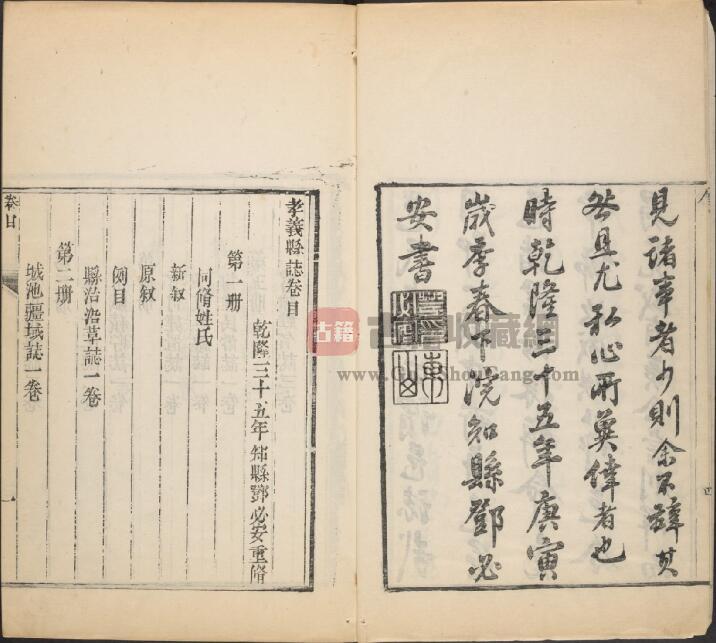 見諸事者少則余不辭其
咎且尤私心所冀倖者也
時乾隆三十五年庚寅
歲季春下浣知縣鄧必
安書
孝義縣誌卷目
乾隆三十五年知縣鄧必安重脩
第一册
同脩姓氏
新叙
原叙
例目
縣治沿革誌一卷
第二册
城池疆域誌一卷
卷目
古籍
古籍收藏網
www.GuJiShouCang.com